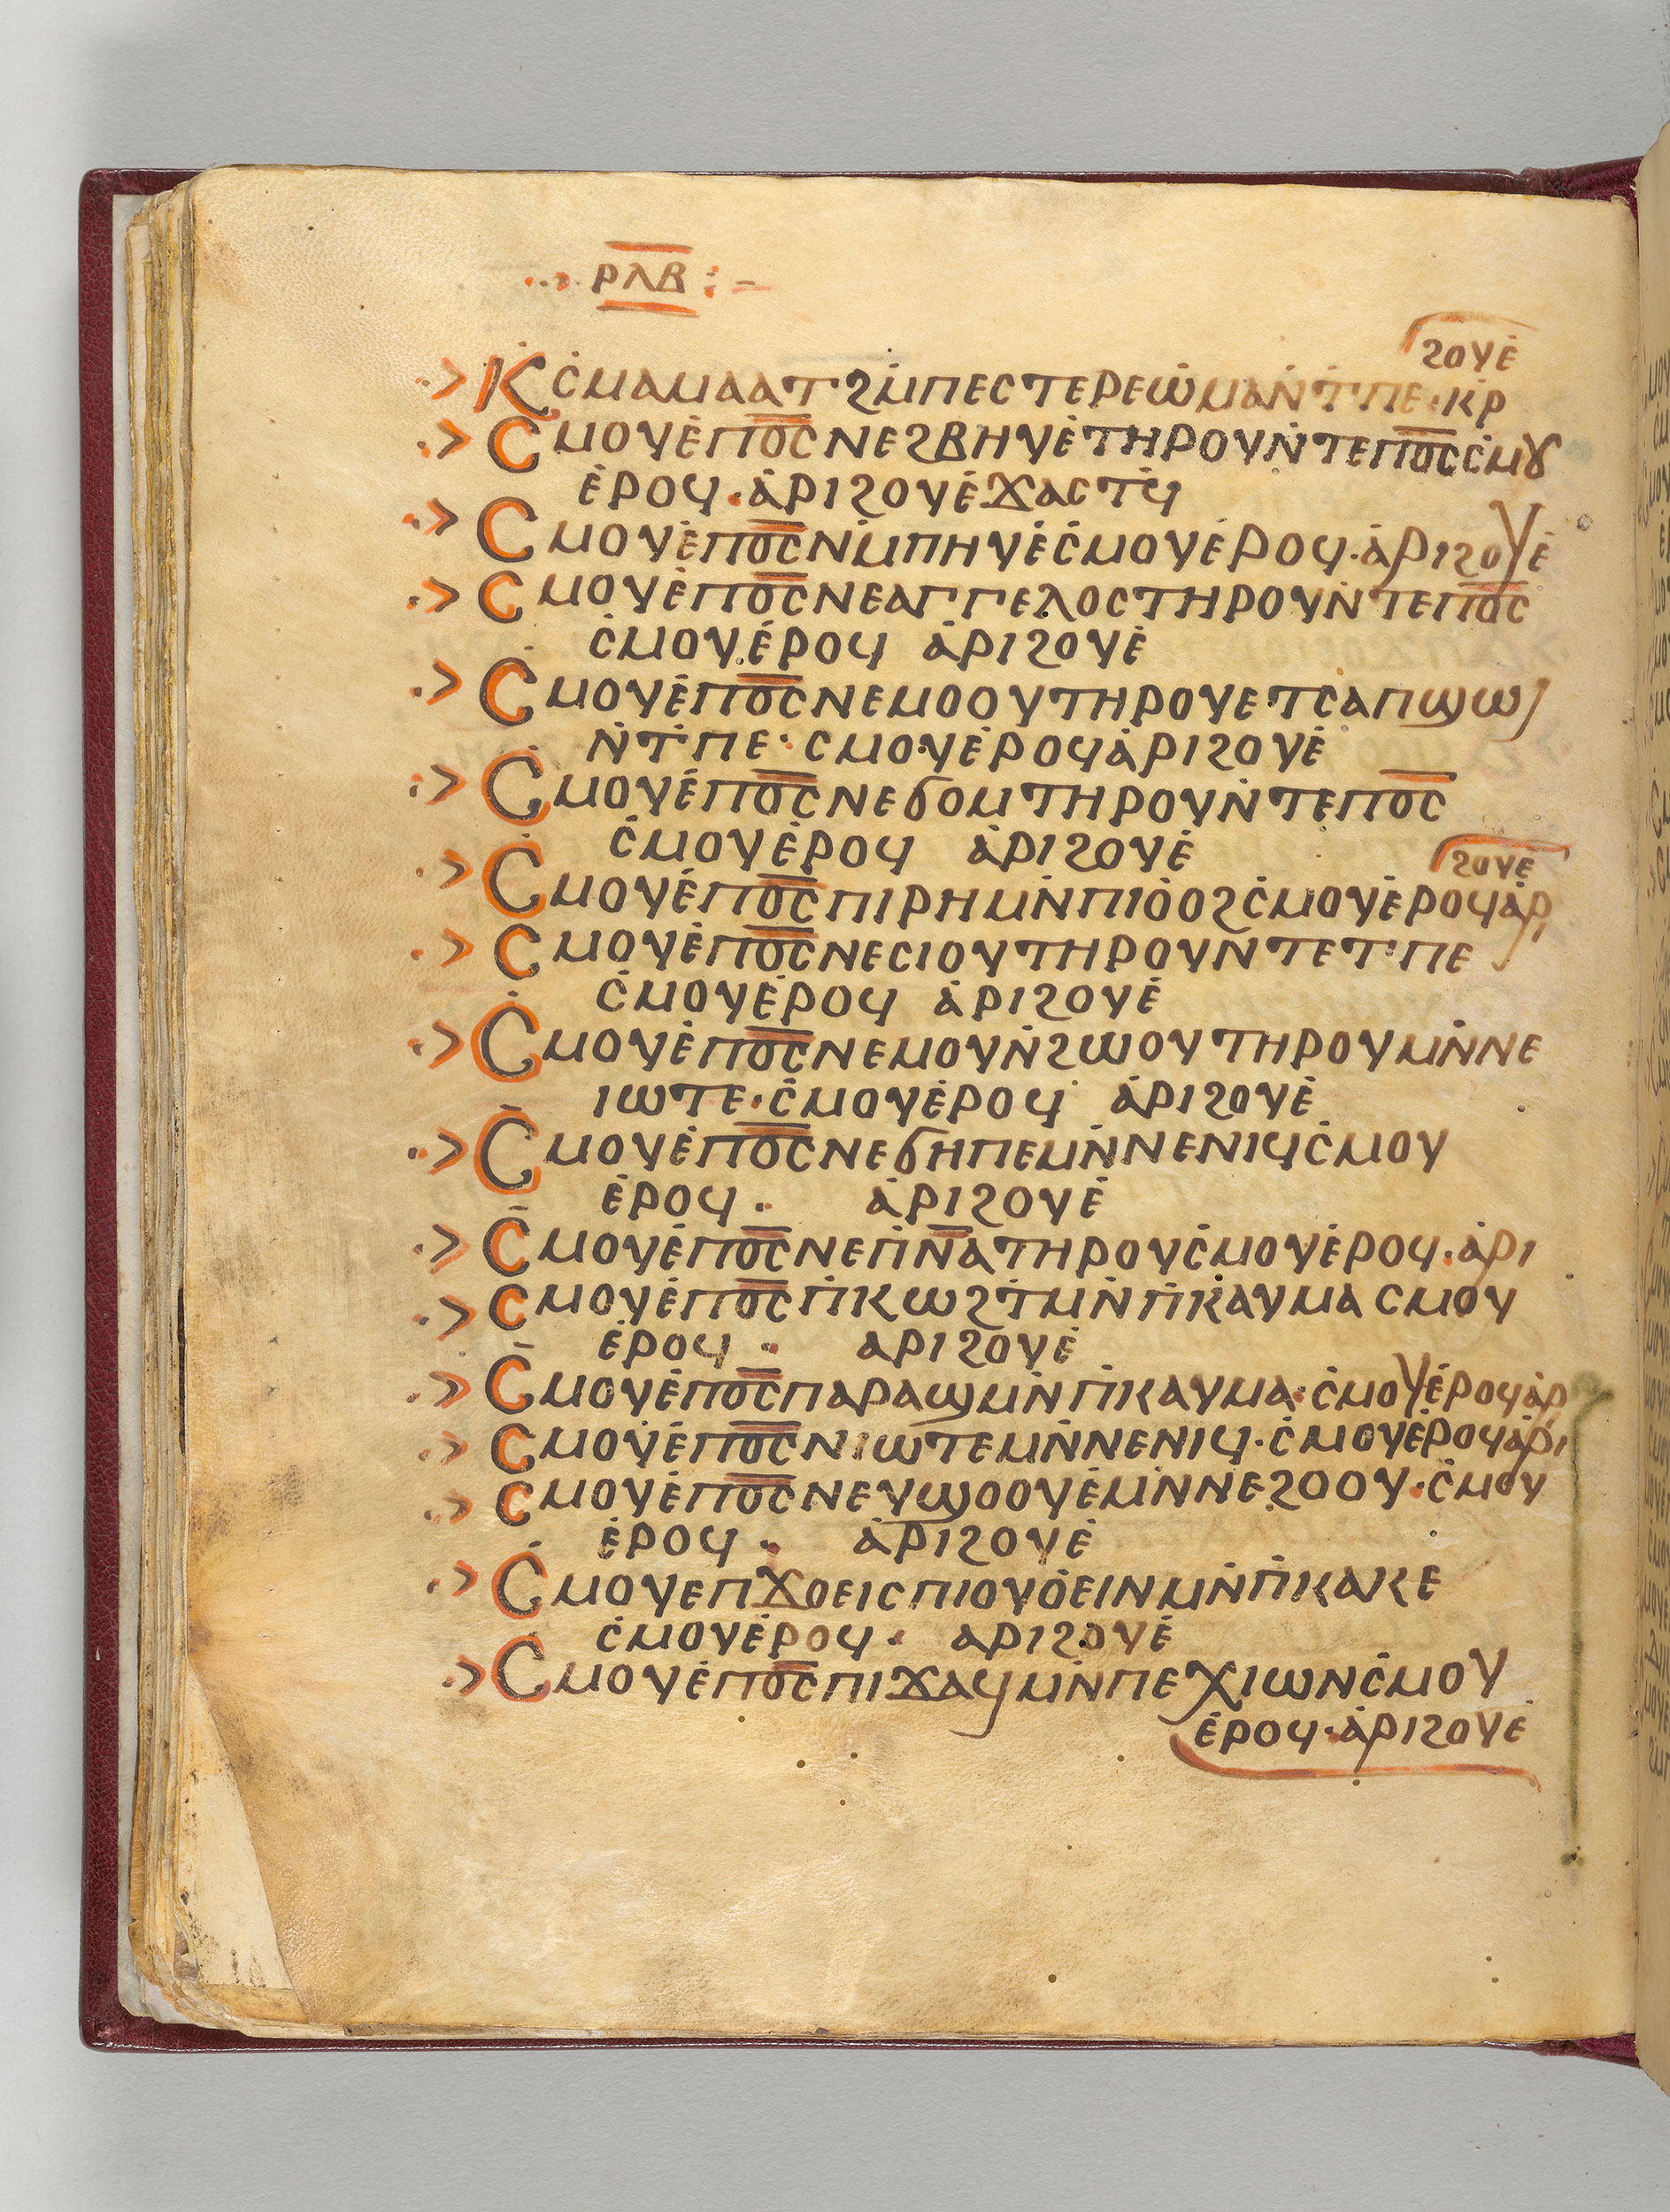 ⲣⲗⲃ :-
ϩⲟⲩⲉ̇
Ⲕⲥ̇ⲙⲁⲙⲁⲁⲧϩⲙ̇ⲡⲉⲥⲧⲉⲣⲉⲱ̇ⲙⲁⲛ̇ⲧ̇ⲡⲉ·ⲕⲣ̇
Ⲥⲙⲟⲩⲉ̇ⲡⲟ̅ⲥ̅ⲛⲉϩⲃⲏⲩⲉ̇ⲧⲏⲣⲟⲩⲛ̇ⲧⲉⲡⲟ̅ⲥ̅ⲥ̇ⲙⲟⲩ
ⲉ̇ⲣⲟϥ·ⲁ̇ⲣⲓϩⲟⲩⲉ̇ϫⲁⲥⲧϥ̇
Ⲥⲙⲟⲩⲉ̇ⲡⲟ̅ⲥ̅ⲛⲙ̇ⲡⲏⲩⲉ̇ⲥ̇ⲙⲟⲩⲉ̇ⲣⲟϥ·ⲁ̇ⲣⲓϩⲟⲩⲉ̇
Ⲥⲙⲟⲩⲉ̇ⲡⲟ̅ⲥ̅ⲛⲉⲁⲅⲅⲉⲗⲟⲥⲧⲏⲣⲟⲩⲛ̇ⲧⲉⲡⲟ̅ⲥ̅
ⲥ̇ⲙⲟⲩⲉ̇ⲣⲟϥ ⲁ̇ⲣⲓϩⲟⲩⲉ̇
Ⲥⲙⲟⲩⲉ̇ⲡⲟ̅ⲥ̅ⲛⲉⲙⲟⲟⲩⲧⲏⲣⲟⲩⲉⲧⲥⲁⲡϣⲱⲓ
ⲛ̇ⲧ̇ⲡⲉ·ⲥⲙⲟⲩⲉ̇ⲣⲟϥⲁ̇ⲣⲓϩⲟⲩⲉ̇
Ⲥⲙⲟⲩⲉ̇ⲡⲟ̅ⲥ̅ⲛⲉϭⲟⲙⲧⲏⲣⲟⲩⲛ̇ⲧⲉⲡⲟ̅ⲥ̅
ⲥ̇ⲙⲟⲩⲉ̇ⲣⲟϥ ⲁ̇ⲣⲓϩⲟⲩⲉ̇
ϩⲟⲩⲉ̇
Ⲥⲙⲟⲩⲉ̇ⲡⲟ̅ⲥ̅ⲡⲓⲣⲏⲙⲛ̇ⲡⲓⲟ̇ⲟϩⲥ̇ⲙⲟⲩⲉ̇ⲣⲟϥⲁ̇ⲣⲓ
Ⲥⲙⲟⲩⲉ̇ⲡⲟ̅ⲥ̅ⲛⲉⲥⲓⲟⲩⲧⲏⲣⲟⲩⲛⲧⲉⲧ̇ⲡⲉ
ⲥ̇ⲙⲟⲩⲉ̇ⲣⲟϥ ⲁ̇ⲣⲓϩⲟⲩⲉ̇
Ⲥⲙⲟⲩⲉ̇ⲡⲟ̅ⲥ̅ⲛⲉⲙⲟⲩⲛ̇ϩⲱⲟⲩⲧⲏⲣⲟⲩⲙⲛ̇ⲛⲉ
ⲓⲱⲧⲉ·ⲥ̇ⲙⲟⲩⲉ̇ⲣⲟϥ ⲁ̇ⲣⲓϩⲟⲩⲉ̇
Ⲥⲙⲟⲩⲉ̇ⲡⲟ̅ⲥ̅ⲛⲉϭⲏⲡⲉⲙⲛ̇ⲛⲉⲛⲓϥⲥ̇ⲙⲟⲩ
ⲉ̇ⲣⲟϥ· ⲁ̇ⲣⲓϩⲟⲩⲉ̇
Ⲥⲙⲟⲩⲉ̇ⲡⲟ̅ⲥ̅ⲛⲉⲡ̇ⲛ̅ⲁⲧⲏⲣⲟⲩⲥ̇ⲙⲟⲩⲉ̇ⲣⲟϥ·ⲁ̇ⲣⲓ
Ⲥⲙⲟⲩⲉ̇ⲡⲟ̅ⲥ̅ⲡ̇ⲕⲱϩⲧ̇ⲙⲛ̇ⲡ̇ⲕⲁⲩⲙⲁⲥⲙⲟⲩ
ⲉ̇ⲣⲟϥ· ⲁⲣⲓϩⲟⲩⲉ̇
Ⲥⲙⲟⲩⲉ̇ⲡⲟ̅ⲥ̅ⲡⲁⲣⲁϣⲙⲛ̇ⲡ̇ⲕⲁⲩⲙⲁ·ⲥ̇ⲙⲟⲩⲉ̇ⲣⲟϥⲁ̇ⲣ
Ⲥⲙⲟⲩⲉ̇ⲡⲟ̅ⲥ̅ⲛⲓⲱⲧⲉⲙⲛ̇ⲛⲉⲛⲓϥ·ⲥ̇ⲙⲟⲩⲉ̇ⲣⲟϥⲁ̇ⲣⲓ
Ⲥⲙⲟⲩⲉ̇ⲡⲟ̅ⲥ̅ⲛⲉⲩϣⲟⲟⲩⲉ̇ⲙⲛ̇ⲛⲉϩⲟⲟⲩ·ⲥ̇ⲙⲟⲩ
ⲉ̇ⲣⲟϥ· ⲁ̇ⲣⲓϩⲟⲩⲉ̇
Ⲥⲙⲟⲩⲉⲡϫⲟⲉⲓⲥⲡⲓⲟⲩⲟ̇ⲉⲓⲛⲙⲛ̇ⲡ̇ⲕⲁⲕⲉ
ⲥ̇ⲙⲟⲩⲉ̇ⲣⲟϥ· ⲁⲣⲓϩⲟⲩⲉ̇
Ⲥⲙⲟⲩⲉ̇ⲡⲟ̅ⲥ̅ⲡⲓϫⲁϥⲙⲛ̇ⲡⲉⲭⲓⲱⲛⲥ̇ⲙⲟⲩ
ⲉ̇ⲣⲟϥ·ⲁ̇ⲣⲓϩⲟⲩⲉ̇